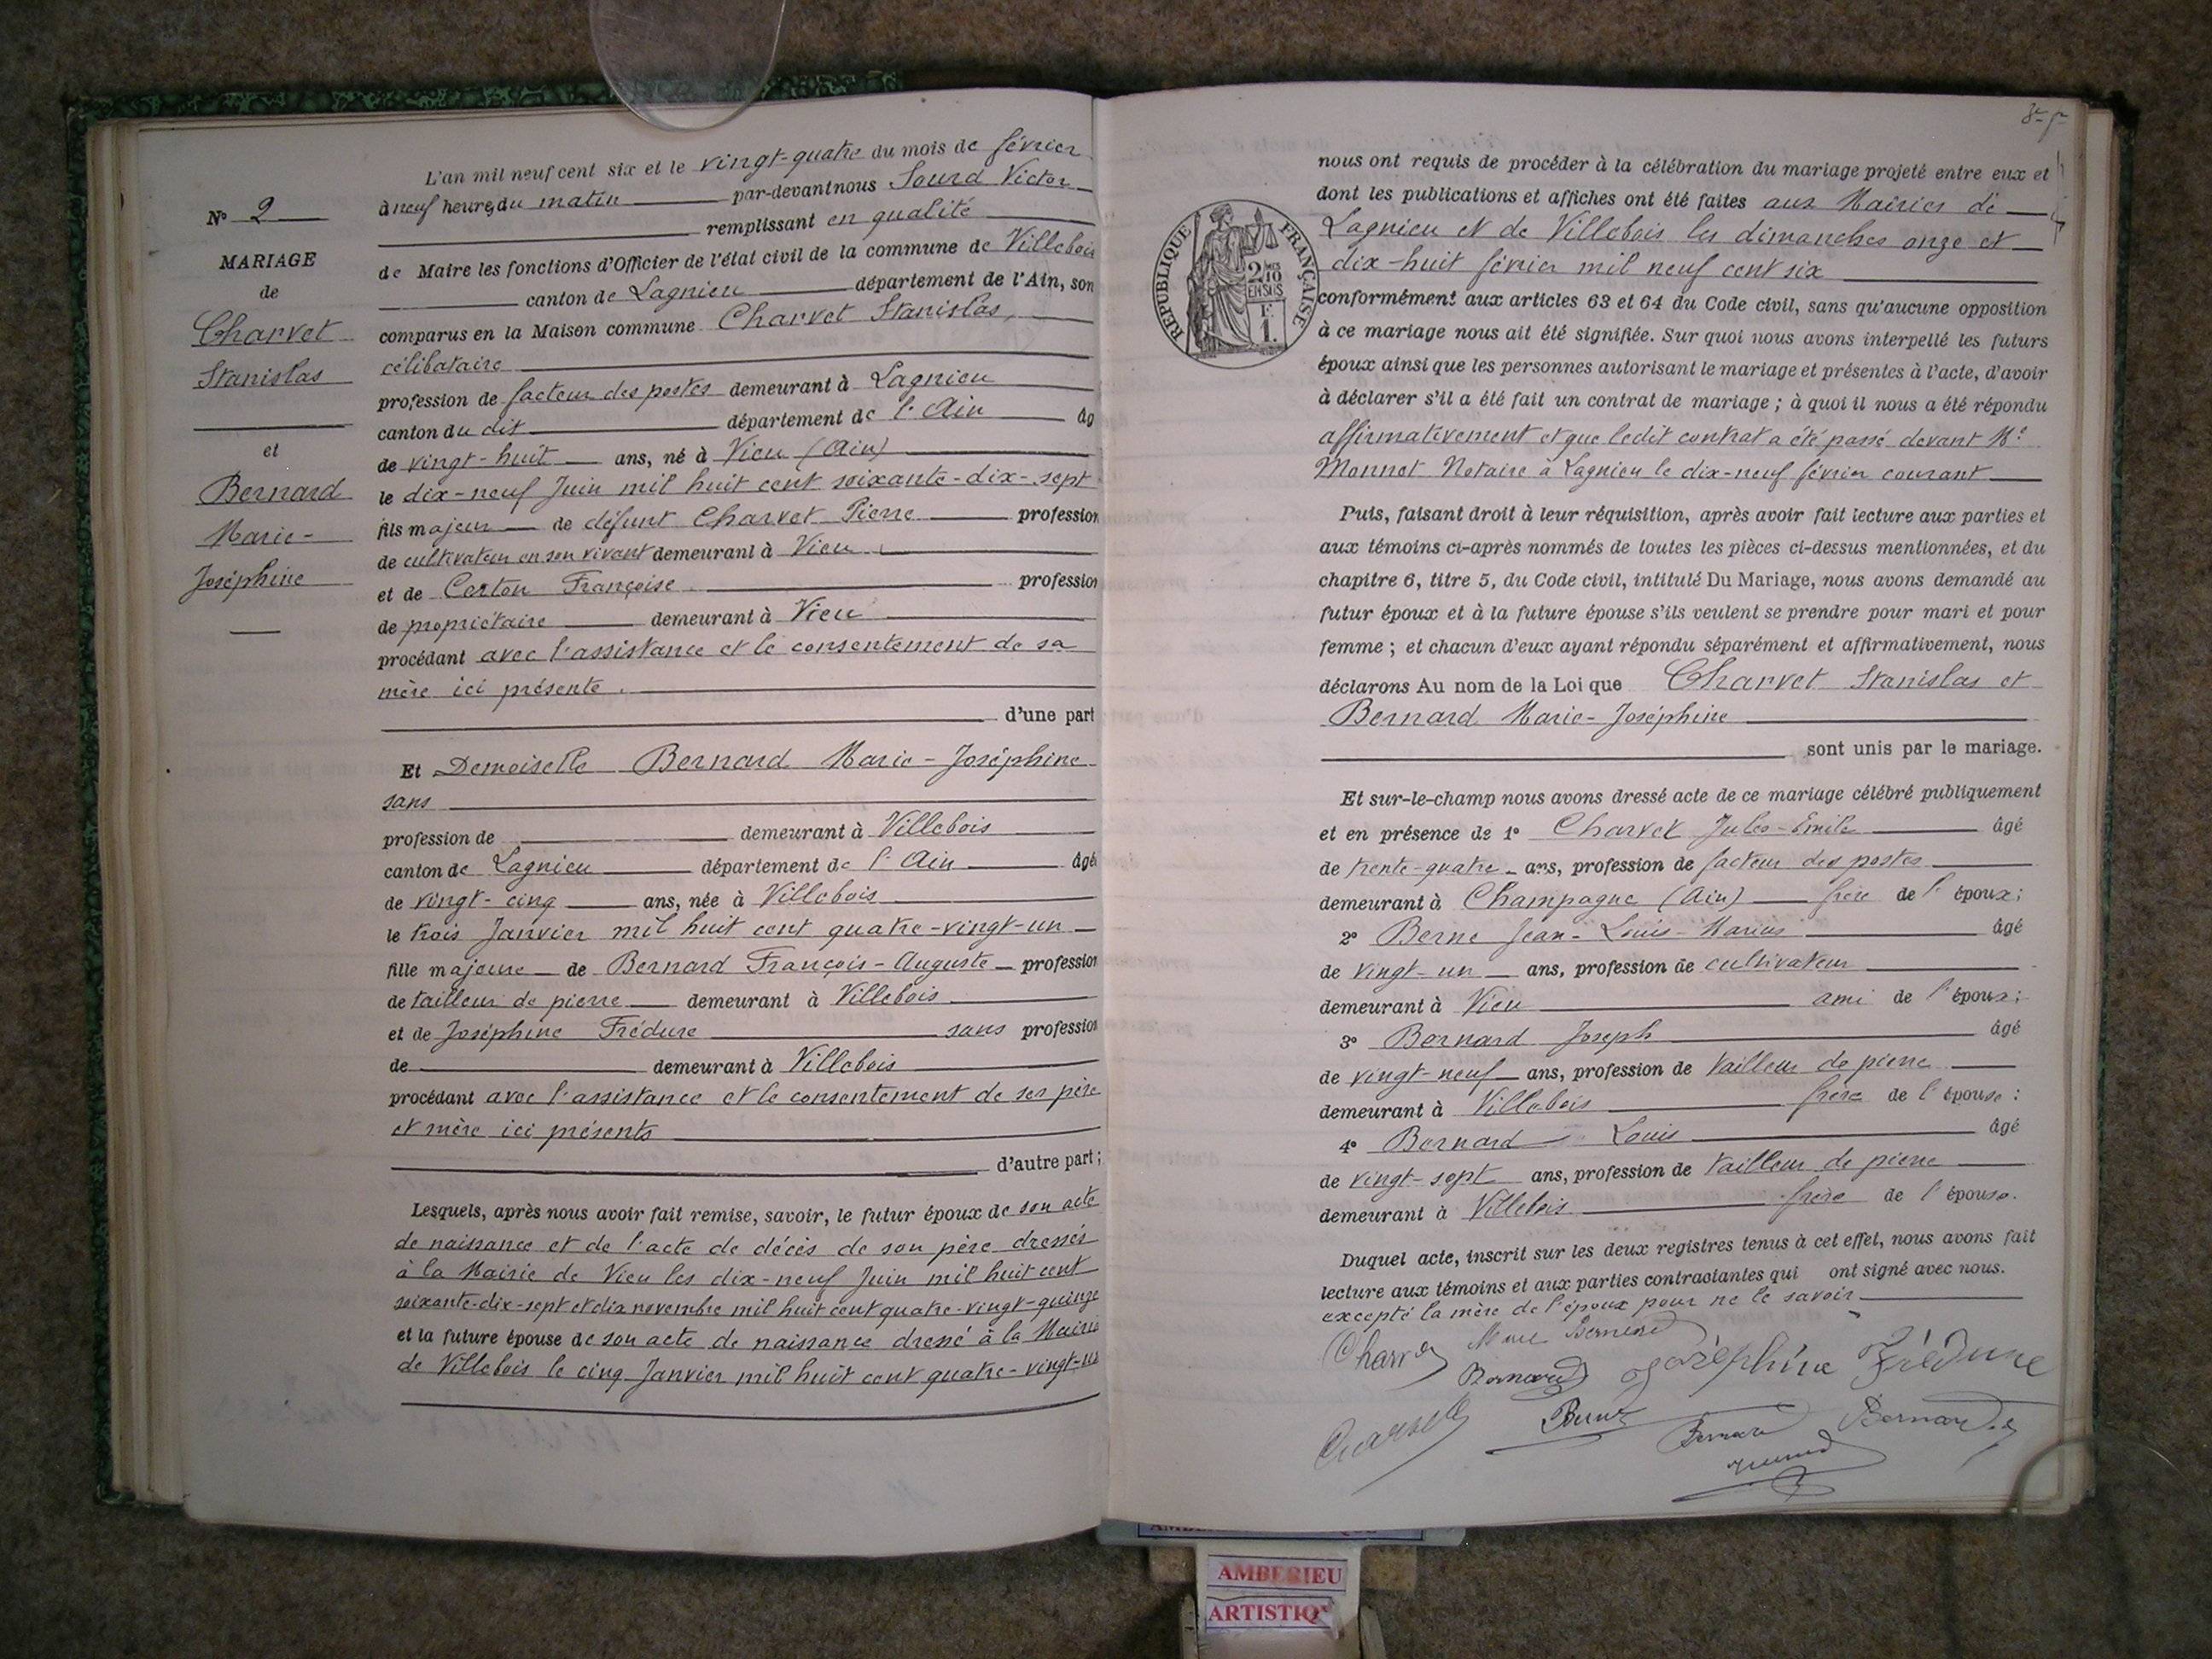 N° 2
MARIAGE
de
Charvet
Stanislas
et
Bernard
Marie-
Joséphine
L'an mil neuf cent six et le vingt-quatre du mois de février
à neuf heures du matin par-devant nous Sourd Victor
remplissant en qualité
de Maire les fonctions d'Officier de l'état civil de la commune de Villebois
canton de Lagnieu département de l'Ain, son
comparus en la Maison commune Charvet Stanislas,
célibataire
profession de facteur des postes demeurant à Lagnieu
canton du dit département de l'Ain âg
de vingt-huit ans, né à Vieu (Ain)
le dix-neuf Juin mil huit cent soixante-dix-sept
fils majeur de défunt Charvet Pierre profession
de cultivateur en son vivant demeurant à Vieu
et de Certon Françoise profession
de propriétaire demeurant à Vieu
procédant avec l'assistance et le consentement de sa
mère ici présente.
d'une part
Et Demoiselle Bernard Marie-Joséphine
sans
profession de demeurant à Villebois
canton de Lagnieu département de l'Ain âgé
de vingt-cinq ans, née à Villebois
le trois Janvier mil huit cent quatre-vingt-un
fille majeure de Bernard François-Auguste profession
de tailleur de pierre demeurant à Villebois
et de Joséphine Frédure sans profession
de demeurant à Villebois
procédant avec l'assistance et le consentement de ses père
et mère ici présents
d'autre part;
Lesquels, après nous avoir fait remise, savoir, le futur époux de son acte
de naissance et de l'acte de décès de son père dressés
à la Mairie de Vieu les dix-neuf Juin mil huit cent
soixante-dix-sept et dix novembre mil huit cent quatre-vingt-quinze
et la future épouse de son acte de naissance dressé à la Mairie
de Villebois le cinq Janvier mil huit cent quatre-vingt-un
nous ont requis de procéder à la célébration du mariage projeté entre eux et
dont les publications et affiches ont été faites aux Mairies de
Lagnieu et de Villebois les dimanches onze et
dix-huit février mil neuf cent six
RÉPUBLIQUE FRANÇAISE
2 MES
10
EN SUS
F.
1.
conformément aux articles 63 et 64 du Code civil, sans qu'aucune opposition
à ce mariage nous ait été signifiée. Sur quoi nous avons interpellé les futurs
époux ainsi que les personnes autorisant le mariage et présentes à l'acte, d'avoir
à déclarer s'il a été fait un contrat de mariage; à quoi il nous a été répondu
affirmativement et que ledit contrat a été passé devant Me
Monnet Notaire à Lagnieu le dix-neuf février courant
Puis, faisant droit à leur réquisition, après avoir fait lecture aux parties et
aux témoins ci-après nommés de toutes les pièces ci-dessus mentionnées, et du
chapitre 6, titre 5, du Code civil, intitulé Du Mariage, nous avons demandé au
futur époux et à la future épouse s'ils veulent se prendre pour mari et pour
femme; et chacun d'eux ayant répondu séparément et affirmativement, nous
déclarons Au nom de la Loi que Charvet Stanislas et
Bernard Marie-Joséphine
sont unis par le mariage.
Et sur-le-champ nous avons dressé acte de ce mariage célébré publiquement
et en présence de 1° Charvet Jules-Emile âgé
de trente-quatre ans, profession de facteur des postes
demeurant à Champagne (Ain) frère de l'époux;
2° Berne Jean-Louis-Marius âgé
de vingt-un ans, profession de cultivateur
demeurant à Vieu ami de l'époux;
3° Bernard Joseph âgé
de vingt-neuf ans, profession de tailleur de pierre
demeurant à Villebois frère de l'épouse:
4° Bernard Louis âgé
de vingt-sept ans, profession de tailleur de pierre
demeurant à Villebois frère de l'épouse.
Duquel acte, inscrit sur les deux registres tenus à cet effet, nous avons fait
lecture aux témoins et aux parties contractantes qui ont signé avec nous.
excepté la mère de l'époux pour ne le savoir
Charvet Marie Bernard
Bernard Joséphine Frédure
Charvet Berne Bernard Bernard
AMBERIEU
ARTISTIQ